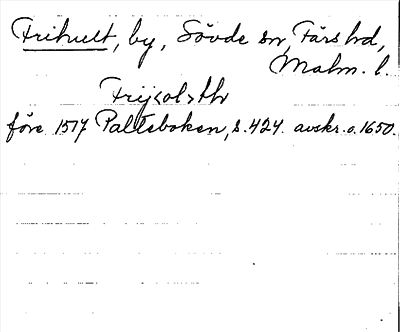 Frihult, by, Sövde sn, Färs hd,
Malm. l.
Frijsolsthr
före 1517 Palteboken, s. 424. avskr. o. 1650.